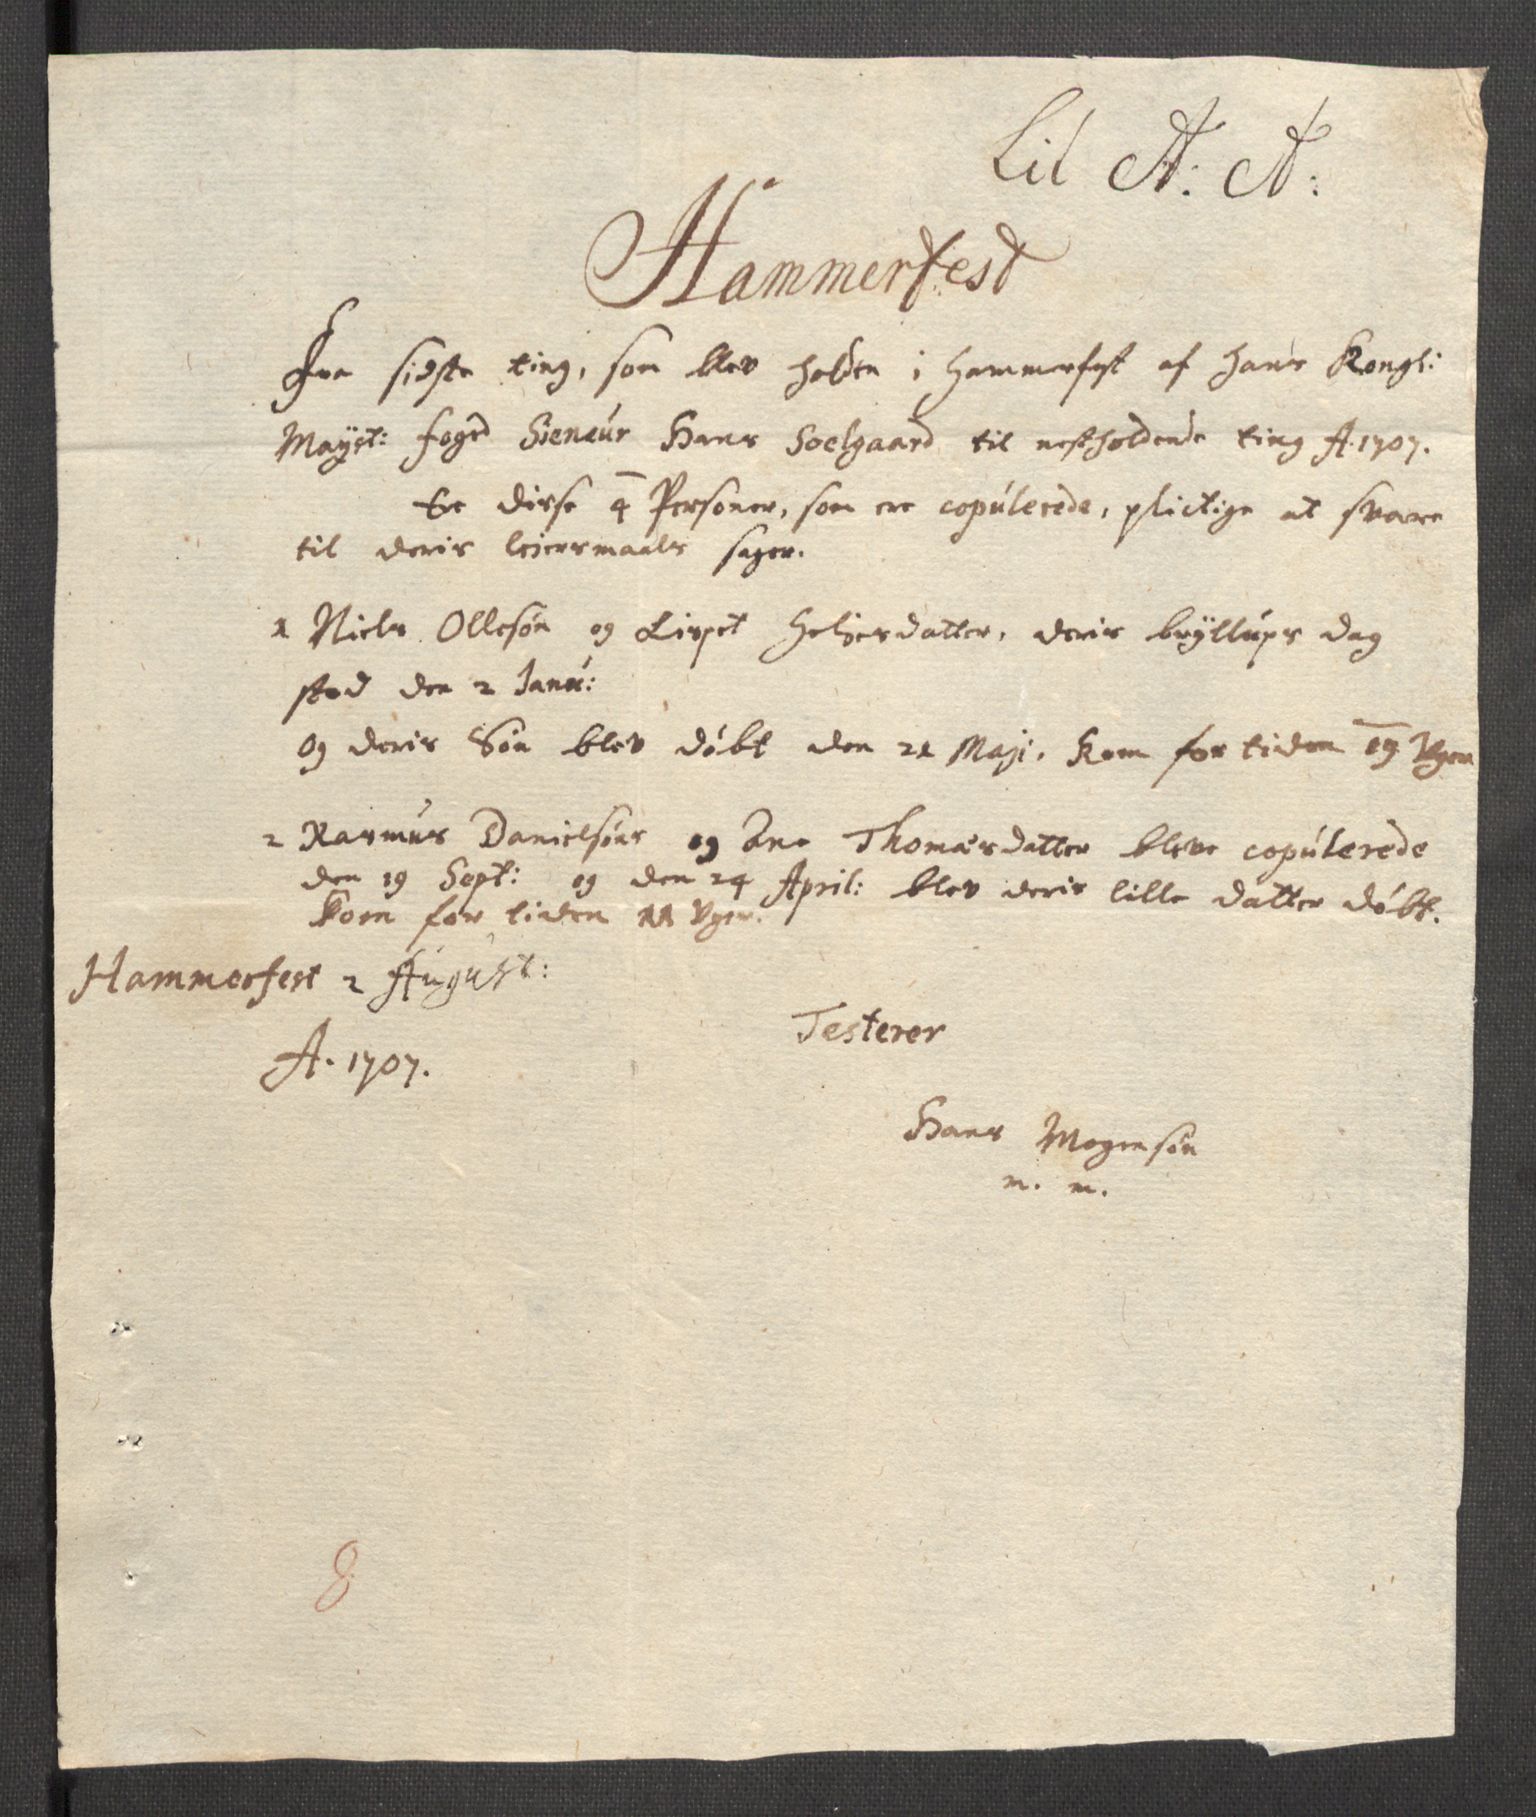 Lit A: A:
Hammerfest
Fra sidste ting, som blev holden i Hammerfest af hans Kongl:
Mayst: foged Sieneur Hans Soelgaard til nestholdende ting A. 1707.
Ere disse 4 Personer, som ere copulerede, plictige at svare
til deris leiersmaals sager.
1 Niels Ollesøn og Lispet Heljesdatter, deris bryllups dag
stod den 2 Janu:
og deris Søn blev døbt den 21 Maji, kom for tiden 19 Uger
2 Rasmus Danielsøns og Ane Thomasdatter bleve copulerede
den 19 Sept: og den 24 April: blev deris lille datter døbt.
kom for tiden 11 Uger.
Hammerfest 2 August:
A. 1707.
Testerer
Hans Mogensøn
m. m.
8